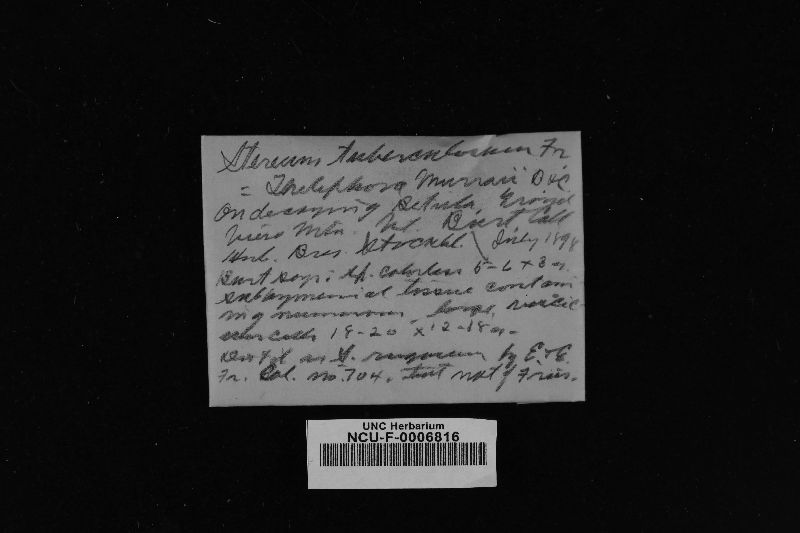 Stereum tuberculosum Fr
= Thelephora Murraii B&C
On decaying Betula, Grand
View Mtn. Vt. Burt Coll
Herb. Bres. Stockhl. July 1898
Burt says: sp. colorless 5-6 x 3 µ.
subhymenial tissue contain
ing numerous, large, vesic-
ular cells 18-20 x 12-18 µ.
Dist'd as S. rugosum by E. & E.
Fr. Col. no. 704. but not of Fries.
UNC Herbarium
NCU-F-0006816